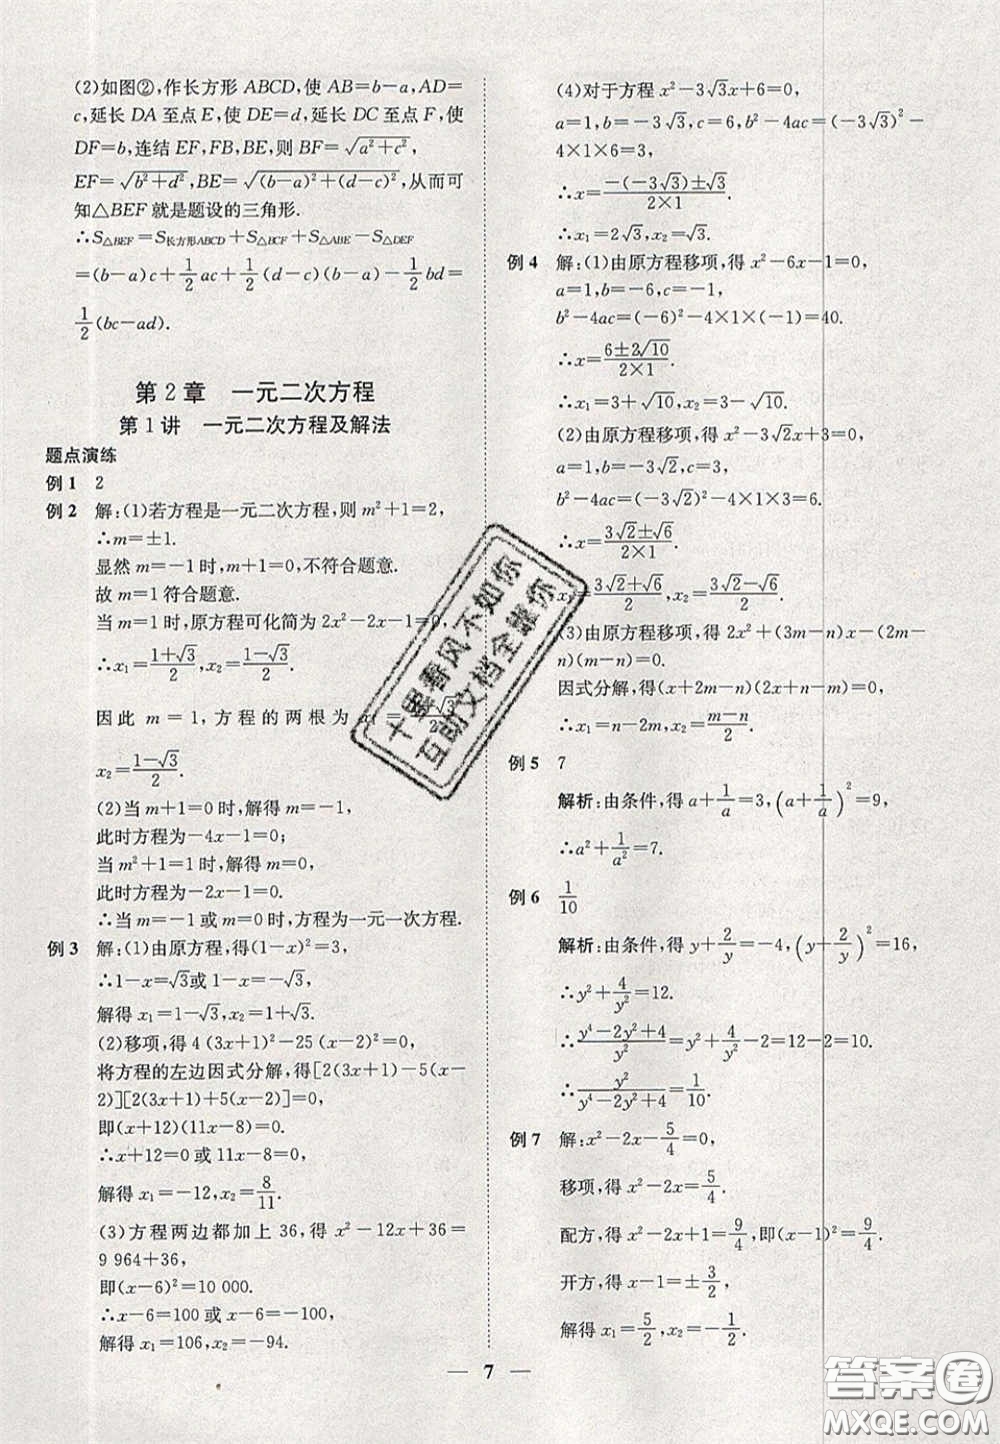 (2)如图②,作长方形 ABCD,使 AB=b-a,AD=
c,延长 DA 至点 E,使 DE=d,延长 DC 至点 F,使
DF=b,连结 EF,FB,BE,则 BF=√(a²+c²),
EF=√(b²+d²),BE=√((b-a)²+(d-c)²),从而可
知△BEF 就是题设的三角形.
∴S△BEF=S长方形ABCD+S△BCF+S△ABE-S△DEF
=(b-a)c+1/2 ac+1/2(d-c)(b-a)-1/2 bd=
1/2(bc-ad).
第 2 章 一元二次方程
第 1 讲 一元二次方程及解法
题点演练
例 1 2
例 2 解:(1)若方程是一元二次方程,则 m²+1=2,
∴m=±1.
显然 m=-1时,m+1=0,不符合题意.
故 m=1 符合题意.
当 m=1 时,原方程可化简为 2x²-2x-1=0,
∴x₁=(1+√3)/2,x₂=(1-√3)/2.
因此 m=1,方程的两根为
x₂=(1-√3)/2.
(2)当 m+1=0 时,解得 m=-1,
此时方程为-4x-1=0;
当 m²+1=1 时,解得 m=0,
此时方程为-2x-1=0.
∴当 m=-1 或 m=0 时,方程为一元一次方程.
例 3 解:(1)由原方程,得(1-x)²=3,
∴1-x=√3或 1-x=-√3,
解得 x₁=1-√3,x₂=1+√3.
(2)移项,得 4 (3x+1)²-25 (x-2)²=0,
将方程的左边因式分解,得[2(3x+1)-5(x-
2)][2(3x+1)+5(x-2)]=0,
即(x+12)(11x-8)=0.
∴x+12=0 或 11x-8=0,
解得 x₁=-12,x₂=8/11.
(3)方程两边都加上 36,得 x²-12x+36=
9 964+36,
即(x-6)²=10 000.
∴x-6=100 或 x-6=-100,
解得 x₁=106,x₂=-94.
(4)对于方程 x²-3√3x+6=0,
a=1,b=-3√3,c=6,b²-4ac=(-3√3)²-
4×1×6=3,
∴x=(-(-3√3)±√3)/(2×1).
∴x₁=2√3,x₂=√3.
例 4 解:(1)由原方程移项,得 x²-6x-1=0,
a=1,b=-6,c=-1,
b²-4ac=(-6)²-4×1×(-1)=40.
∴x=(6±2√10)/(2×1).
∴x₁=3+√10,x₂=3-√10.
(2)由原方程移项,得 x²-3√2x+3=0,
a=1,b=-3√2,c=3,
b²-4ac=(-3√2)²-4×1×3=6.
∴x=(3√2±√6)/(2×1).
∴x₁=(3√2+√6)/2,x₂=(3√2-√6)/2.
(3)由原方程移项,得 2x²+(3m-n)x-(2m-
n)(m-n)=0,
因式分解,得(x+2m-n)(2x-m+n)=0,
∴x₁=n-2m,x₂=(m-n)/2.
例 5 7
解析:由条件,得 a+1/a=3,(a+1/a)²=9,
∴a²+1/a²=7.
例 6 1/10
解析:由条件,得 y+2/y=-4,(y+2/y)²=16,
∴y²+4/y²=12.
∴(y⁴-2y²+4)/y²=y²+4/y²-2=12-2=10.
∴y²/(y⁴-2y²+4)=1/10.
例 7 解:x²-2x-5/4=0,
移项,得 x²-2x=5/4.
配方,得 x²-2x+1=9/4,即(x-1)²=9/4.
开方,得 x-1=±3/2,
解得 x₁=5/2,x₂=-1/2.
十里春风不如你
互助文档全靠你
— 7 —
答案圈
MXQE.COM